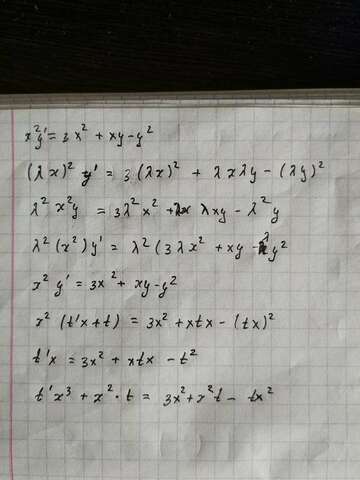 x²y' = 3x² + xy - y²
(λx)² y' = 3(λx)² + λxλy - (λy)²
λ² x²y = 3λ²x² + λxy - λ²y
λ²(x²)y' = λ²(3λx² + xy - y²
x² y' = 3x² + xy - y²
x² (t'x + t) = 3x² + xtx - (tx)²
t'x = 3x² + xtx - t²
t'x³ + x² · t = 3x² + x²t - tx²